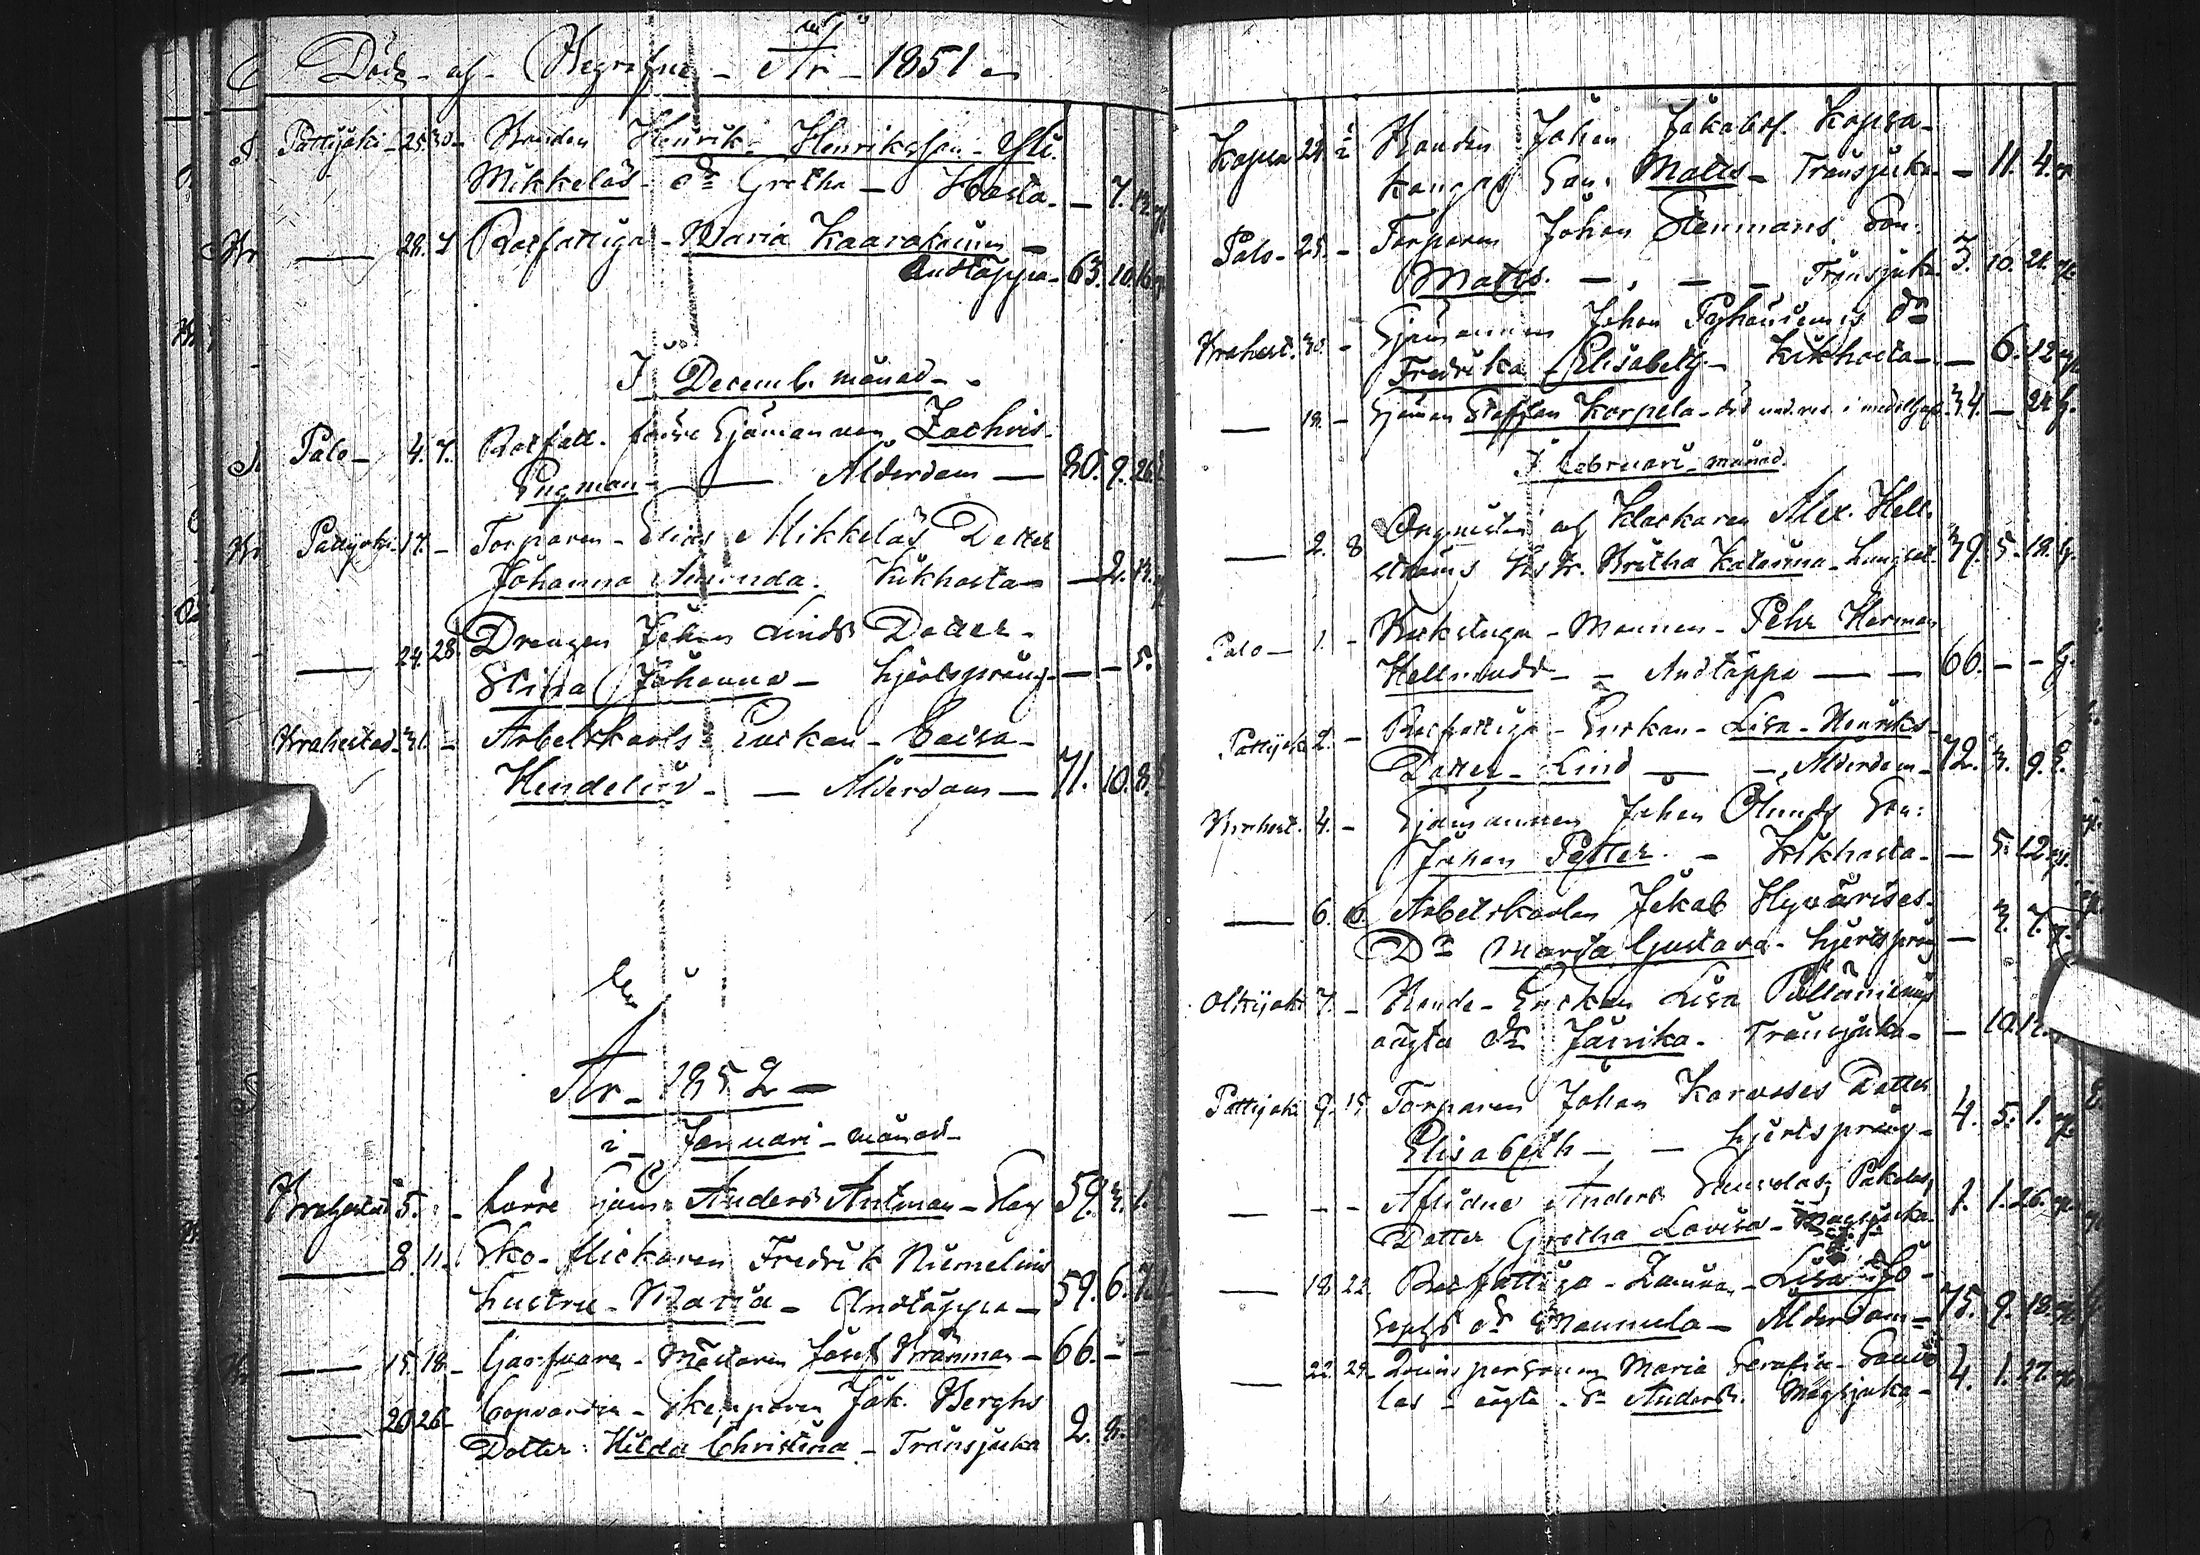 Döde och Begrafne - År - 1851
Pattijoki - 25. 30 - Bonden Henrik Henriksson Yli
Mikkelas dr Gretha - Hosta - - 7. 13.
28. 7 Rotfattiga - Maria Kaarakainen -
Andtäppa - 63. 10.
I Decemb. månad -
Palo - 4. 7. Rotfatt. förre Sjömannen Zachris
Engman - Ålderdom - 80. 9. 26.
Pattijoki - 17. - Torparen - Elias Mikkelas Dotter
Johanna Amanda. Kikhosta - - 2. 13.
24. 28. Drengen Johan Linds Dotter -
Stina Johanna - hjertsprång - - - 5.
Brahestad - 31. - Arbetskarls Enkan - Caisa -
Hendelin - - Ålderdom - 71. 10. 8.
År - 1852 -
i - Januari - månad -
Brahestad 5. - förre Sjöm. Anders Antman - Slag 59.
8. 11. Sko-flickaren Fredrik Numelins
hustru - Maria - Andtäppa - 59. 6.
15. 18. - Garfvare - Mästaren Josef Brännman - 66. - -
20. 26. Copvardie - Skepparen Jak. Berghs
Dotter Hilda Christina - Trånsjuka 2.
Kopsa 24. Bonden Johan Jakobss. Kopsa-
kangas Son. Matts - Trånsjuka - - 11. 4.
Palo - 25. - Torparen Johan Stenmans Son
Matts. - - - Trånsjuka 3. 10. 21.
Brahest. 30. - Sjömannen Johan Pyhänens dr
Fredrika Elisabeth - Kikhosta - - 6. 12
18. - Sjöman Staffan Korpela - 34. - 24 g.
I februari månad.
2. 8 Organisten och Klockaren Alex. Hell-
ströms Hstr. Britha Katarina - Lungsot. 39. 5. 18. g.
Palo - 1. - Backstugu - Mannen - Pehr Herman
Hellmudd - - Andtäppa - - 66. - - g.
Pattijoki 2. - Rotfattiga - Enkan - Lisa - Henriks
Dotter - Lind - - Ålderdom - 72. 3. 9. E.
Brahest. 4. - Sjömannen Johan Ölunds Son:
Johan Petter. - Kikhosta. - 5. 12
6. Arbetskarlen Jakob Hyvärises
Dr Maria Gustava - hjertsprång - 3. 7.
Olkijoki 7. - Bonde - Enkan Lisa
oägta dr Jaurika - Trånsjuka - - 10. 12.
Pattijoki 9. 15 Torparen Johan Karvoses Dotter
Elisabeth - - hjertsprång - 4. 5. 1.
- - Aflidne Anders
Dotter Gretha Lovisa - Magsjuka 1. 1. 26.
18. 22. Rotfattiga - Lisa Jo-
sephs dr Maunula - Ålderdom - 75. 9. 18.
22. 29. Qvinspersonen Maria Serafia
las oägta Sn Anders. Magsjuka - 4. 1. 27.